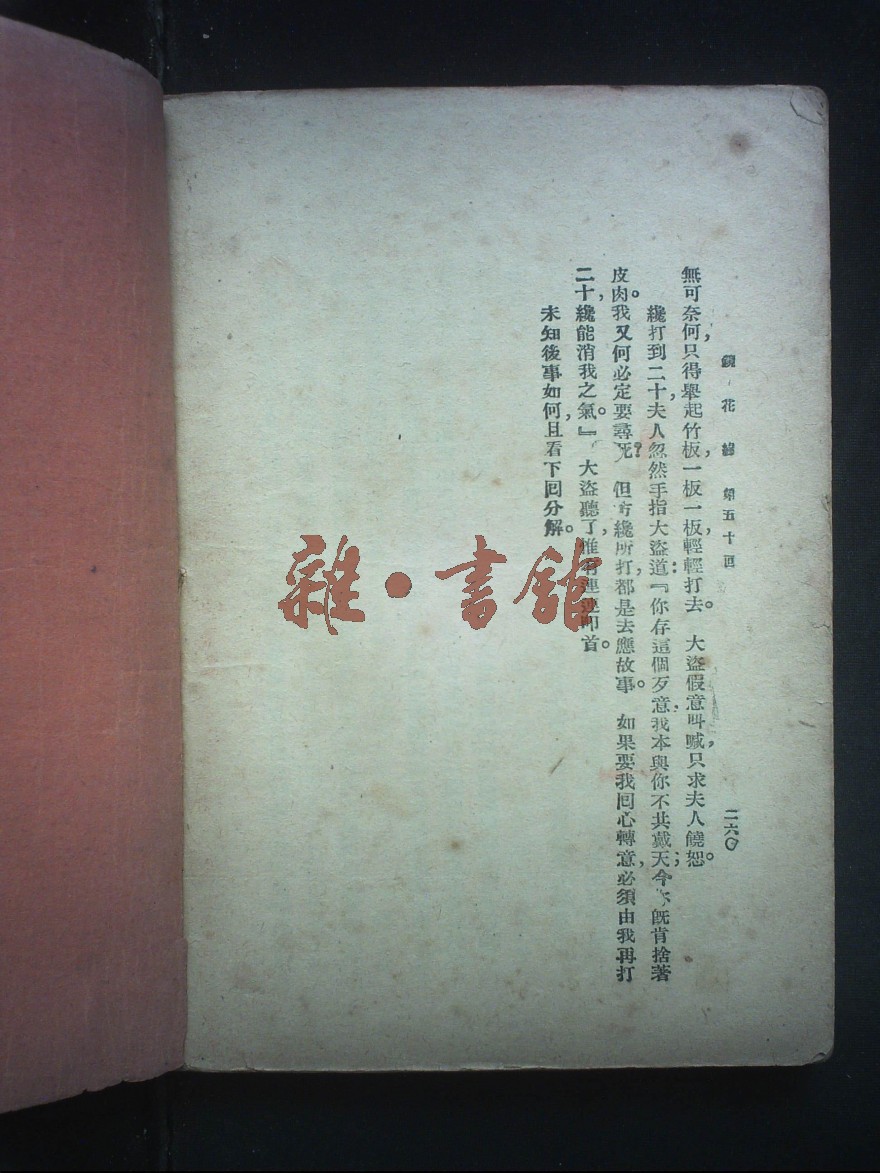 鏡花緣 第五十回 二六〇
無可奈何，只得舉起竹板，一板一板，輕輕打去。大盜假意叫喊，只求夫人饒恕。
纔打到二十，夫人忽然手指大盜道：『你存這個歹意，我本與你不共戴天；今你既肯捨著
皮肉。我又何必定要尋死？但方纔所打，都是去應故事。如果要我回心轉意，必須由我再打
二十，纔能消我之氣。』大盜聽了，惟有連連叩首。
未知後事如何，且看下回分解。
雜·書館